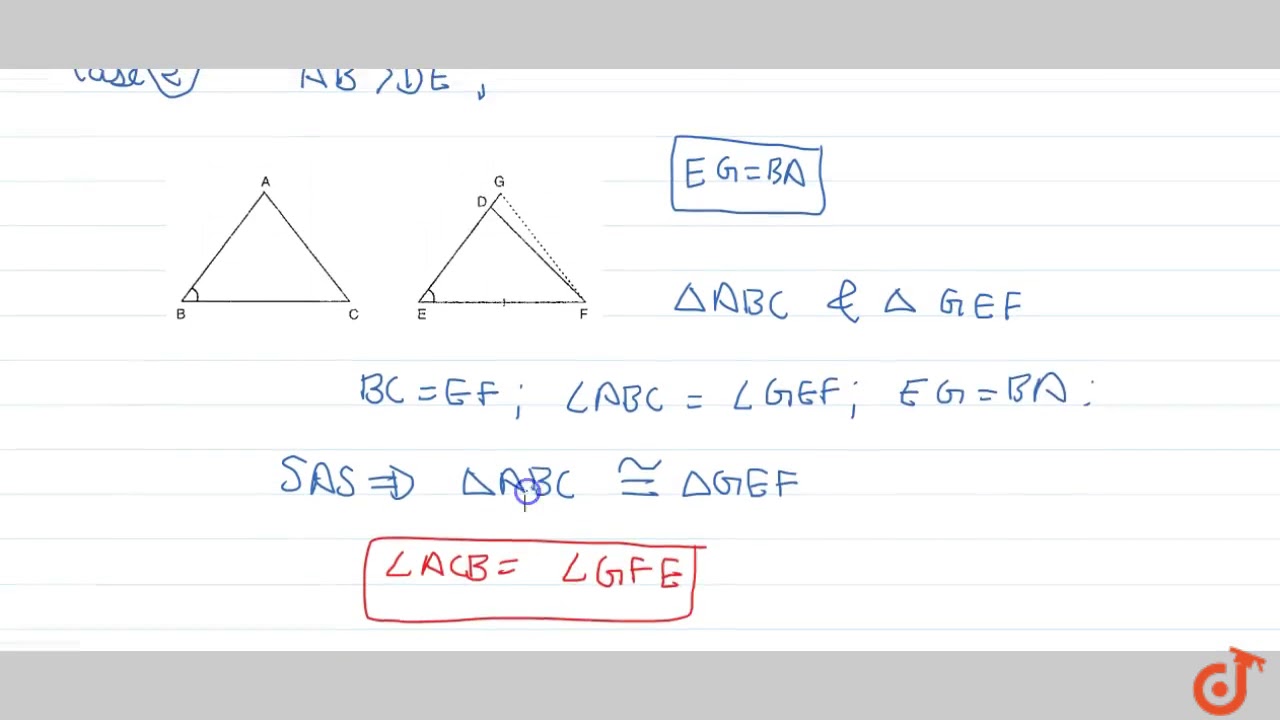 Case (2) AB > DE,
A
G
D
EG=BA
B
C
E
F
△ABC & △GEF
BC = EF ; ∠ABC = ∠GEF ; EG = BA ;
SAS ⇒ △ABC ≅ △GEF
∠ACB = ∠GFE